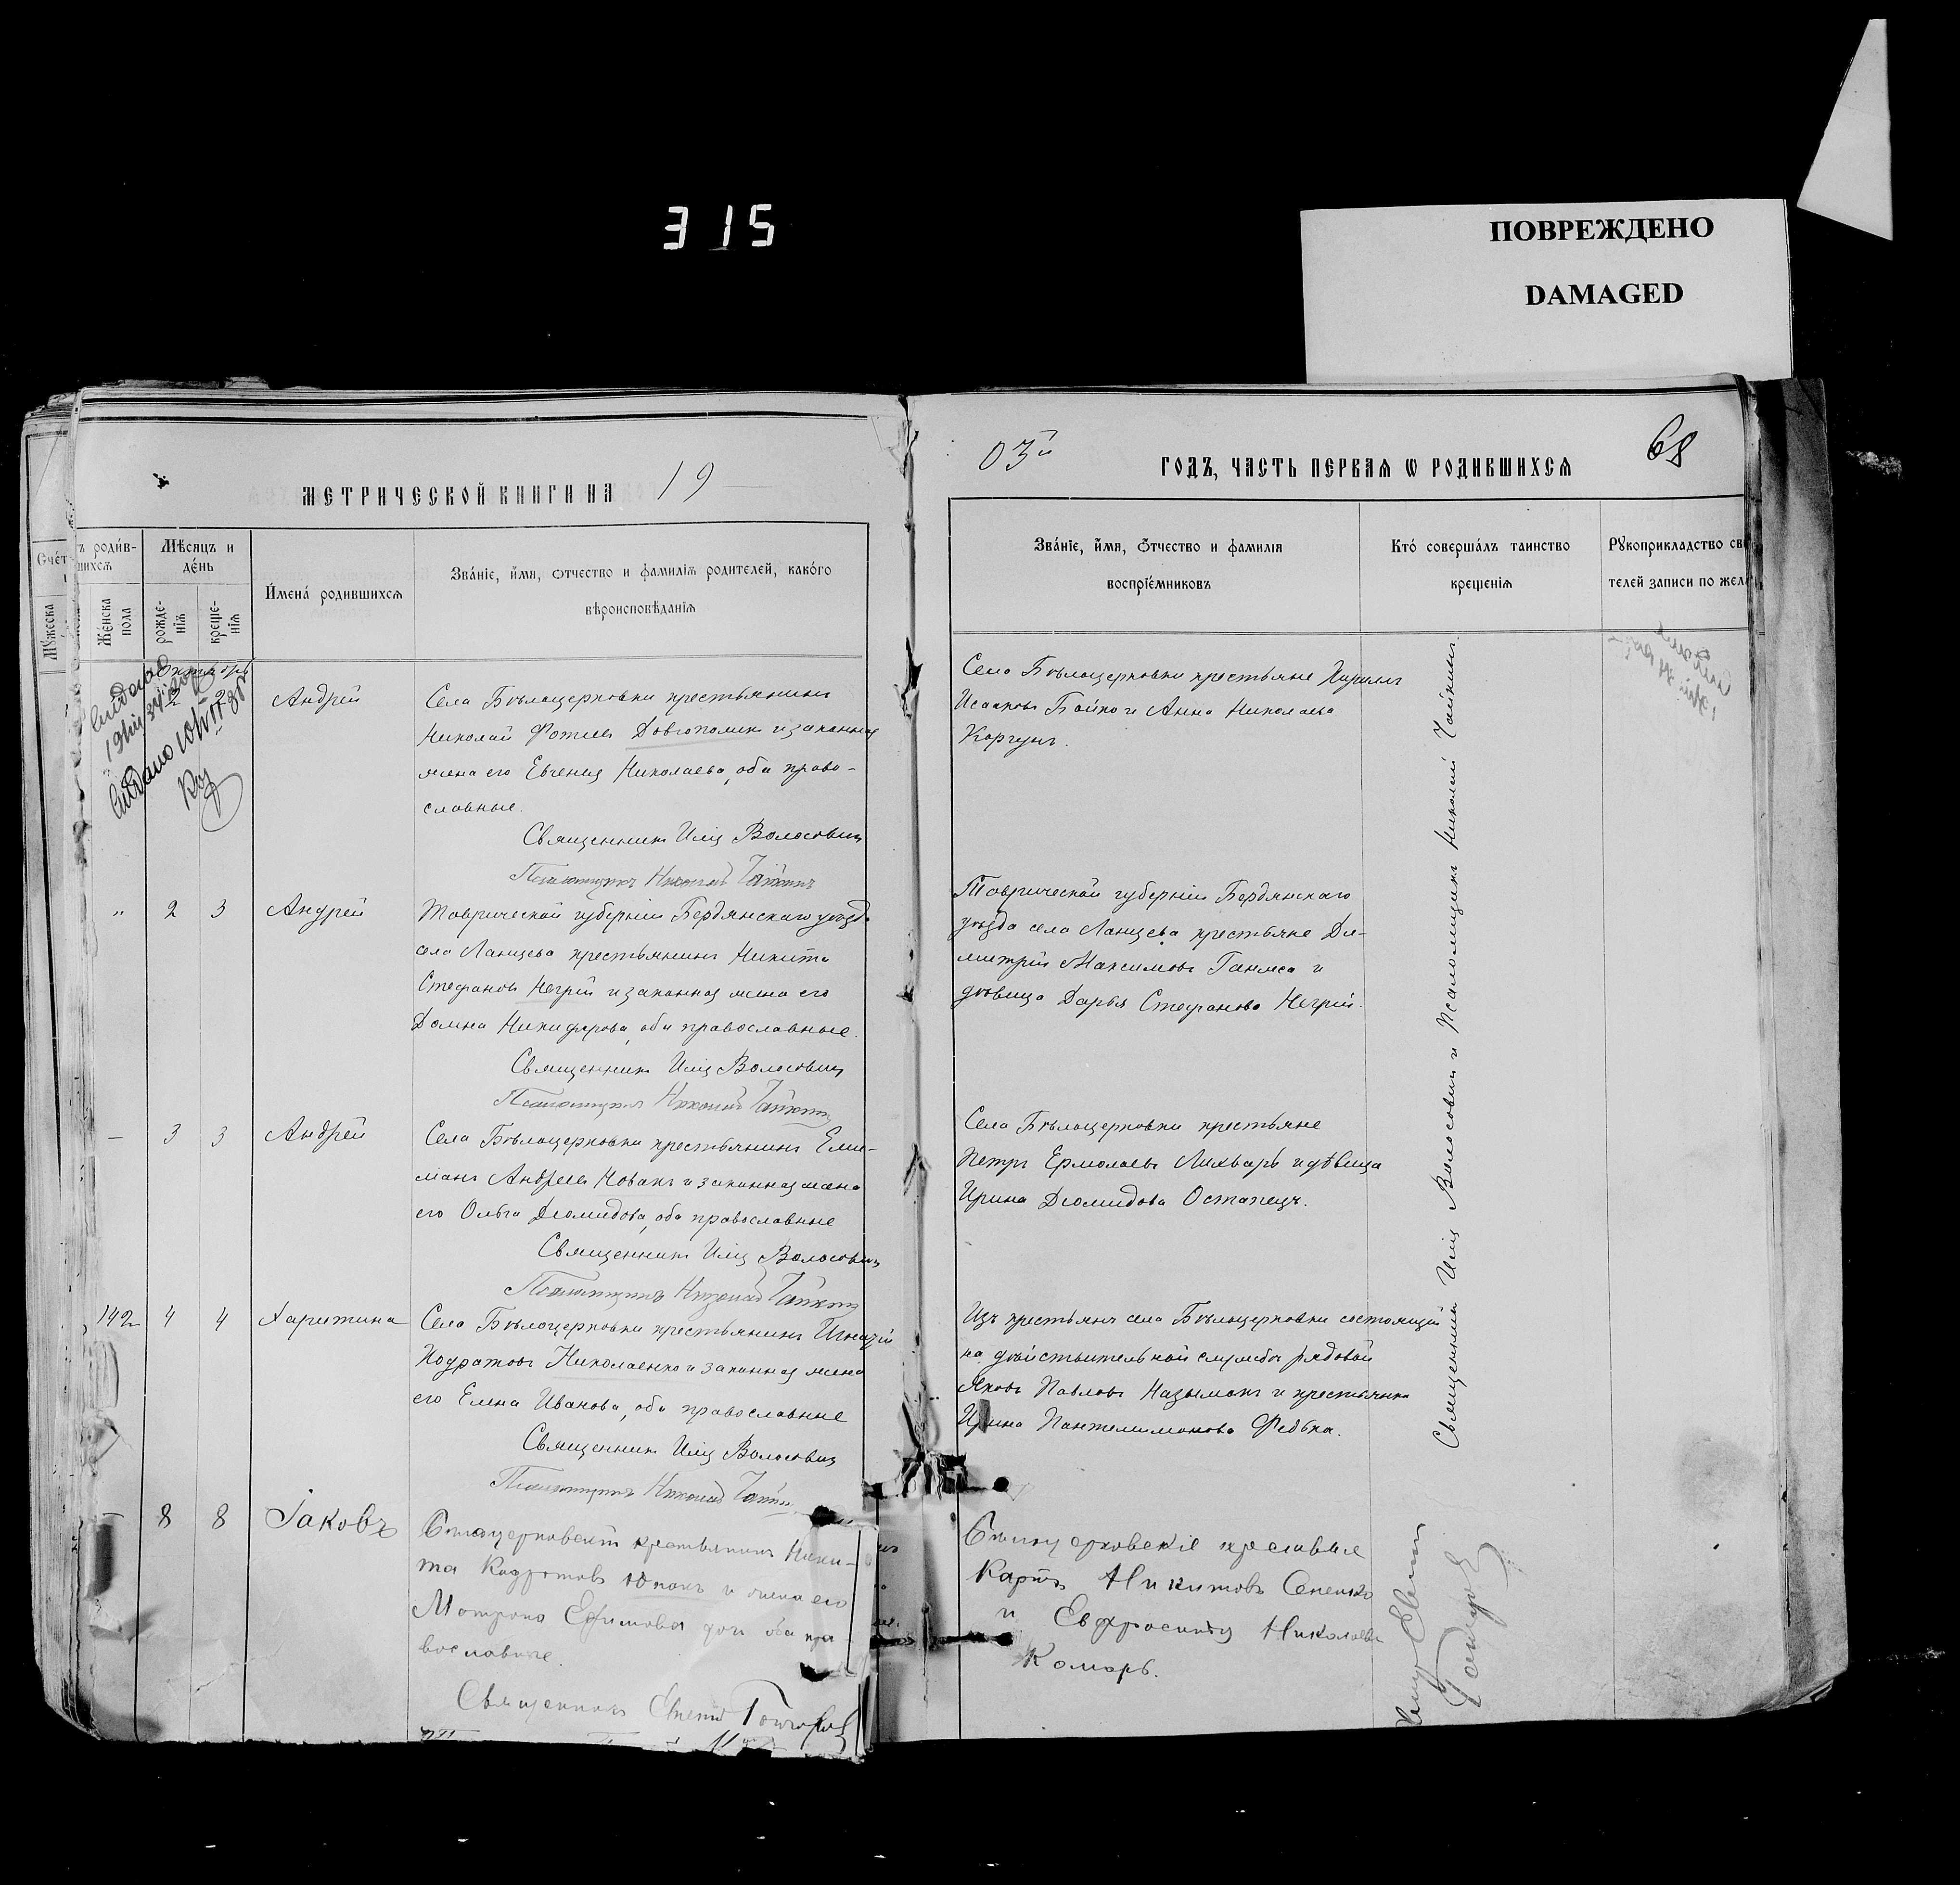 315
ПОВРЕЖДЕНО
DAMAGED
МЕТРИЧЕСКОЙ КНИГИ НА 19
03й ГОДЪ, ЧАСТЬ ПЕРВАЯ Ѡ РОДИВШИХСЯ
68
Счет
ъ родив-
шихся
Мѣсяцъ и
день
Имена родившихся
Званіе, имя, отчество и фамилія родителей, какого
вѣроисповѣданія
Мужеска
Женска
пола
рожде-
нія
креще-
нія
Званіе, имя, отчество и фамилія
воспріемниковъ
Кто совершалъ таинство
крещенія
Рукоприкладство св
телей записи по жел
Октябрь
2 2 Андрей
Села Бѣлоцерковки крестьянинъ
Николай Фотіевъ Довгополикъ и законная
жена его Евгенія Николаева, оба право-
славные.
Священникъ Илія Волосовичъ
Псаломщикъ Николай Чайкинъ
Село Бѣлоцерковки крестьяне Кириллъ
Исааковъ Бойко и Анна Николаева
Коргунъ.
" 2 3 Андрей
Таврической губерніи Бердянскаго уѣзда
села Ланцева крестьянинъ Никита
Стефановъ Негрій и законная жена его
Домна Никифорова, оба православные.
Священникъ Илія Волосовичъ
Псаломщикъ Николай Чайкинъ
Таврической губерніи Бердянскаго
уѣзда села Ланцева крестьяне Ди-
митрій Максимовъ Ганжа и
дѣвица Дарья Стефанова Негрій.
— 3 3 Андрей
Села Бѣлоцерковки крестьянинъ Еми-
ліанъ Андреевъ Новакъ и законная жена
его Ольга Діомидова, оба православные
Священникъ Илія Волосовичъ
Псаломщикъ Николай Чайкинъ
Села Бѣлоцерковки крестьяне
Петръ Ермолаевъ Лихварь и дѣвица
Ирина Діомидова Остапецъ.
142 4 4 Харитина
Села Бѣлоцерковки крестьянинъ Игнатій
Кодратовъ Николаенко и законная жена
его Елена Иванова, оба православные
Священникъ Илія Волосовичъ
Псаломщикъ Николай Чайкинъ
Изъ крестьянъ села Бѣлоцерковки состоящій
на дѣйствительной службѣ рядовой
Яковъ Павловъ Назымокъ и крестьянка
Ирина Пантелимонова Федька.
Священникъ Илія Волосовичъ и Псаломщикъ Николай Чайкинъ.
— 8 8 Іаковъ
крестьянинъ Ники-
та Кодратовъ и жена его
Матрона Ефимова оба пра-
вославные.
Священникъ
Никитовъ
и Евфросинія Николаева
Комарь.